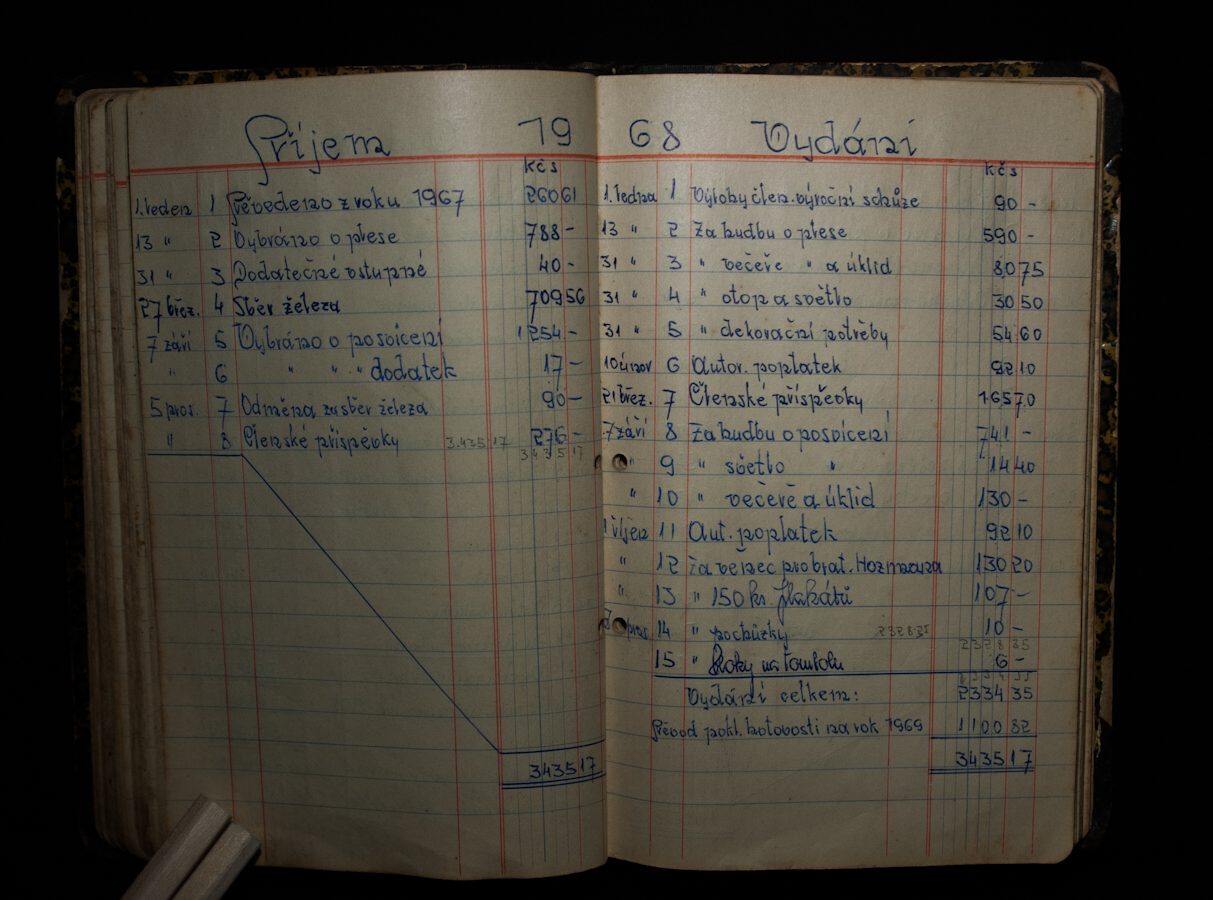 Příjem 19
kčs
1.leden 1 Převedeno z roku 1967 26061
13 " 2 Vybráno o plese 788 -
31 " 3 Dodatečné vstupné 40 -
27 břez. 4 Sběr železa 709 56
7 září 5 Vybráno o posvícení 1254 -
" 6 " " " dodatek 17 -
5 pros. 7 Odměna za sběr železa 90 -
" 8 Členské příspěvky 3.435 17 276 -
3 4 3 5 17
3435 17
68 Vydání
kčs
1.ledna 1 Výlohy člen. výroční schůze 90 -
13 " 2 Za hudbu o plese 590 -
31 " 3 " večeře " a úklid 80 75
31 " 4 " otop a světlo 30 50
31 " 5 " dekorační potřeby 54 60
10 únor 6 Autor. poplatek 92 10
21 břez. 7 Členské příspěvky 165 70
7 září 8 Za hudbu o posvícení 741 -
" 9 " světlo " 14 40
" 10 " večeře a úklid 130 -
1 říjen 11 Aut. poplatek 92 10
" 12 Za věnec pro brat. 130 20
" 13 " 150 ks. plakátů 107 -
pros. 14 " pochůzky 2328 35 10 -
2 3 2 8 35
15 " bloky na tombolu 6 -
Vydání celkem: 2334 35
Převod pokl. hotovosti na rok 1969 1100 82
3435 17